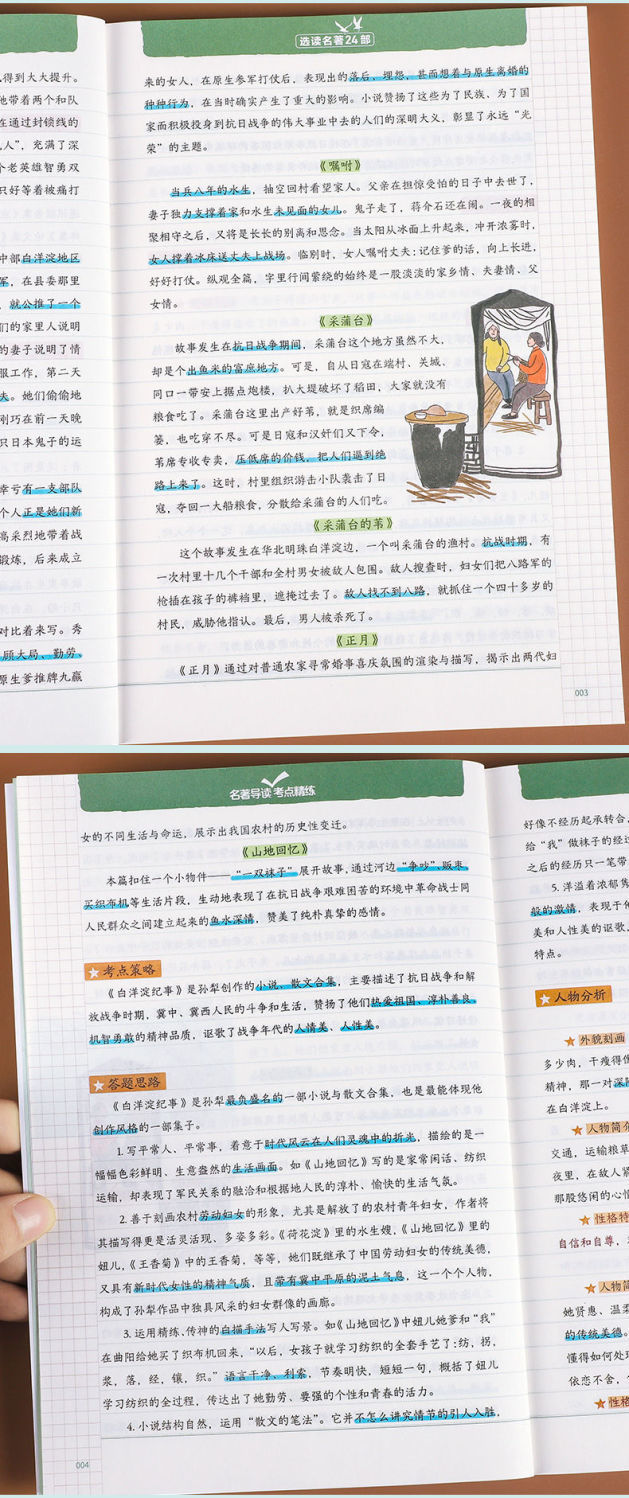 得到大大提升。
他带着两个和队
在通过封锁线的
人”，充满了深
个老英雄智勇双
只好等着被痛打
中部白洋淀地区
军，在县委那里
，就公推了一个
们的家里人说明
的妻子说明了情
服工作，第二天
夫。她们偷偷地
刚巧在前一天晚
只日本鬼子的运
幸亏有一支部队
个人正是她们新
高采烈地带着战
锻炼，后来成立
对比着来写。秀
顾大局、勤劳、
原生爹推牌九赢
选读名著24部
来的女人，在原生参军打仗后，表现出的落后、埋怨，甚而想着与原生离婚的
种种行为，在当时确实产生了重大的影响。小说赞扬了这些为了民族、为了国
家而积极投身到抗日战争的伟大事业中去的人们的深明大义，彰显了永远“光
荣”的主题。
《嘱咐》
当兵八年的水生，抽空回村看望家人。父亲在担惊受怕的日子中去世了，
妻子独力支撑着家和水生未见面的女儿。鬼子走了，蒋介石还在闹。一夜的相
聚相守之后，又将是长长的别离和思念。当太阳从冰面上升起来，冲开浓雾时，
女人撑着冰床送丈夫上战场。临别时，女人嘱咐丈夫：记住爹的话，向上长进，
好好打仗。纵观全篇，字里行间萦绕的始终是一股淡淡的家乡情、夫妻情、父
女情。
《采蒲台》
故事发生在抗日战争期间，采蒲台这个地方虽然不大，
却是个出鱼米的富庶地方。可是，自从日寇在端村、关城、
同口一带安上据点炮楼，扒大堤破坏了稻田，大家就没有
粮食吃了。采蒲台这里出产好苇，就是织席编
篓，也吃穿不尽。可是日寇和汉奸们又下令，
苇席专收专卖，压低席的价钱，把人们逼到绝
路上来了。这时，村里组织游击小队袭击了日
寇，夺回一大船粮食，分散给采蒲台的人们吃。
《采蒲台的苇》
这个故事发生在华北明珠白洋淀边，一个叫采蒲台的渔村。抗战时期，有
一次村里十几个干部和全村男女被敌人包围。敌人搜查时，妇女们把八路军的
枪插在孩子的裤裆里，遮掩过去了。敌人找不到八路，就抓住一个四十多岁的
村民，威胁他指认。最后，男人被杀死了。
《正月》
《正月》通过对普通农家寻常婚事喜庆氛围的渲染与描写，揭示出两代妇
003
名著导读 考点精练
女的不同生活与命运，展示出我国农村的历史性变迁。
《山地回忆》
本篇扣住一个小物件——“一双袜子”展开故事，通过河边“争吵”、贩枣、
买织布机等生活片段，生动地表现了在抗日战争艰难困苦的环境中革命战士同
人民群众之间建立起来的鱼水深情，赞美了纯朴真挚的感情。
考点策略
《白洋淀纪事》是孙犁创作的小说、散文合集，主要描述了抗日战争和解
放战争时期，冀中、冀西人民的斗争和生活，赞扬了他们热爱祖国、淳朴善良、
机智勇敢的精神品质，讴歌了战争年代的人情美、人性美。
答题思路
《白洋淀纪事》是孙犁最负盛名的一部小说与散文合集，也是最能体现他
创作风格的一部集子。
1.写平常人、平常事，着意于时代风云在人们灵魂中的折光，描绘的是一
幅幅色彩鲜明、生意盎然的生活画面。如《山地回忆》写的是家常闲话、纺织
运输，却表现了军民关系的融洽和根据地人民的淳朴、愉快的生活气氛。
2.善于刻画农村劳动妇女的形象，尤其是解放了的农村青年妇女，作者将
其描写得更是活灵活现、多姿多彩。《荷花淀》里的水生嫂，《山地回忆》里的
妞儿，《王香菊》中的王香菊，等等，她们既继承了中国劳动妇女的传统美德，
又具有新时代女性的精神气质，且带有冀中平原的泥土气息，这一个个人物，
构成了孙犁作品中独具风采的妇女群像的画廊。
3.运用精练、传神的白描手法写人写景。如《山地回忆》中妞儿她爹和“我”
在曲阳给她买了织布机回来，“以后，女孩子就学习纺织的全套手艺了：纺，拐，
浆，落，经，镶，织。”语言干净、利索，节奏明快，短短一句，概括了妞儿
学习纺织的全过程，传达出了她勤劳、要强的个性和青春的活力。
4.小说结构自然，运用“散文的笔法”。它并不怎么讲究情节的引人入胜，
004
好像不经历起承转合，
给“我”做袜子的经过
之后的经历只一笔带
5.洋溢着浓郁隽
般的激情，表现于
美和人性美的讴歌，
特点。
人物分析
外貌刻画
多少肉，干瘦得像
精神，那一对深陷
在白洋淀上。
人物简介
交通，运输粮草
夜里，在敌人紧
那股悠闲的心情
性格特
自信和自尊，
人物简
她贤惠、温柔
的传统美德。
懂得如何处理
依恋不舍，
性格